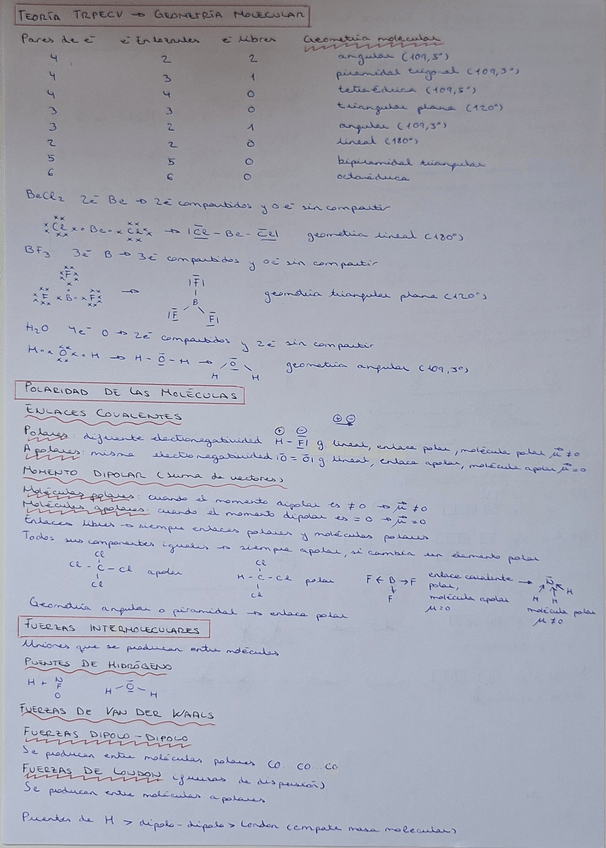 TEORÍA TRPECV → GEOMETRÍA MOLECULAR
Pares de e⁻ e⁻ Enlazantes e⁻ libres Geometría molecular
4 2 2 angular (109,5°)
4 3 1 piramidal trigonal (109,5°)
4 4 0 tetraédrica (109,5°)
3 3 0 triangular plana (120°)
3 2 1 angular (109,5°)
2 2 0 lineal (180°)
5 5 0 bipiramidal triangular
6 6 0 octaédrica
BeCl₂ 2e⁻ Be → 2e⁻ compartidos y 0e⁻ sin compartir
Cl Be Cl → |Cl - Be - Cl| geometría lineal (180°)
BF₃ 3e⁻ B → 3e⁻ compartidos y 0e⁻ sin compartir
F |F|
F B F → B geometría triangular plana (120°)
|F F|
H₂O 4e⁻ O → 2e⁻ compartidos y 2e⁻ sin compartir
H O H → H - O - H → H O H geometría angular (109,5°)
POLARIDAD DE LAS MOLÉCULAS
ENLACES COVALENTES
Polares: diferente electronegatividad H - F| g lineal, enlace polar, molécula polar μ ≠ 0
Apolares: misma electronegatividad |O = O| g lineal, enlace apolar, molécula apolar, μ = 0
MOMENTO DIPOLAR (suma de vectores)
Moléculas polares: cuando el momento dipolar es ≠ 0 → μ ≠ 0
Moléculas apolares: cuando el momento dipolar es = 0 → μ = 0
Enlaces libres → siempre enlaces polares y moléculas polares
Todos sus componentes iguales → siempre apolar, si cambia un elemento polar
Cl Cl
Cl - C - Cl apolar H - C - Cl polar F ← B → F enlace covalente → N
Cl Cl F polar, H H H
molécula apolar molécula polar
μ = 0 μ ≠ 0
Geometría angular o piramidal → enlace polar
FUERZAS INTERMOLECULARES
Uniones que se producen entre moléculas
PUENTES DE HIDRÓGENO
H + N F O H - O - H
FUERZAS DE VAN DER WAALS
FUERZAS DIPOLO-DIPOLO
Se producen entre moléculas polares CO CO CO
FUERZAS DE LONDON (fuerzas de dispersión)
Se producen entre moléculas apolares
Puentes de H > dipolo-dipolo > London (empate masa molecular)